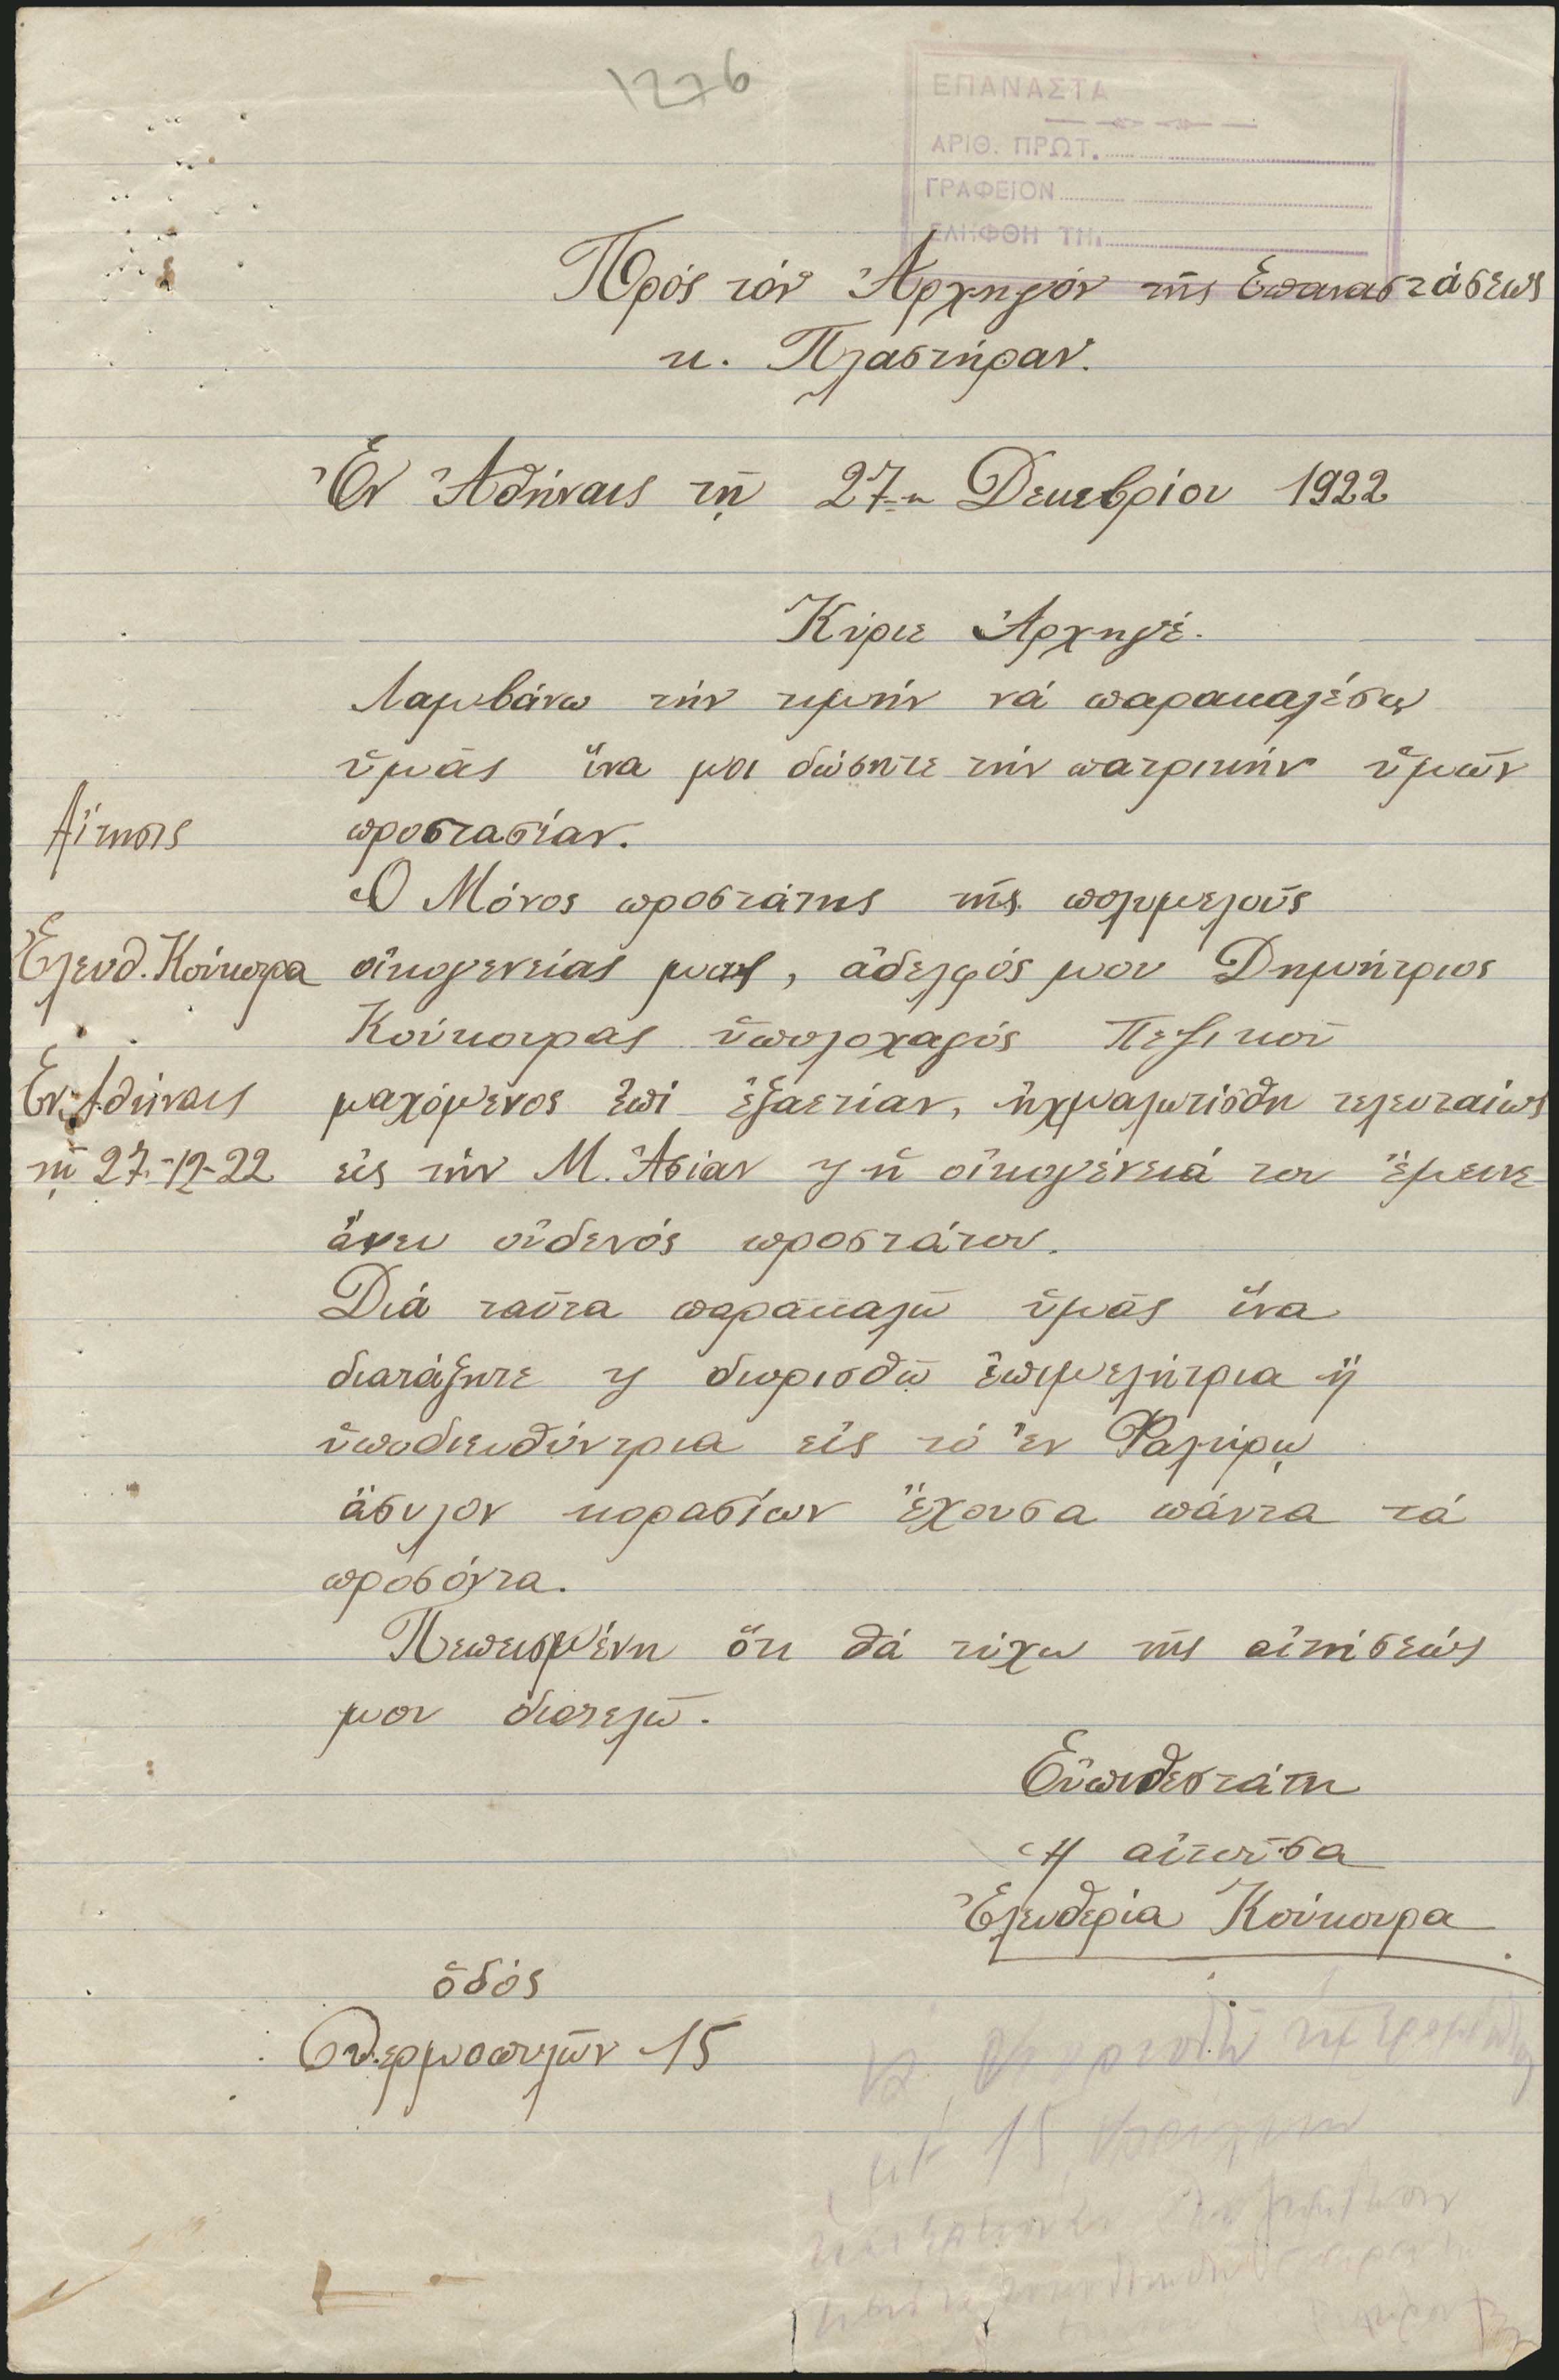 1276
ΕΠΑΝΑΣΤΑ
ΑΡΙΘ. ΠΡΩΤ.
ΓΡΑΦΕΙΟΝ
ΕΛΗΦΘΗ ΤΗι
Πρός τόν Ἀρχηγόν τῆς Ἐπαναστάσεως
κ. Πλαστήραν.
Ἐν Ἀθήναις τῇ 27-η Δεκεβρίου 1922
Κύριε Ἀρχηγέ.
Λαμβάνω τήν τιμήν νά παρακαλέσω
ὑμᾶς ἵνα μοι δώσητε τήν πατρικήν ὑμῶν
προστασίαν.
Ὁ Μόνος προστάτης τῆς πολυμελοῦς
οἰκογενείας μας, ἀδελφός μου Δημήτριος
Κούκουρας ὑπολοχαγός Πεζικοῦ
μαχόμενος ἐπί ἑξαετίαν, ἠχμαλωτίσθη τελευταίως
εἰς τήν Μ. Ἀσίαν ϗ ἡ οἰκογένειά του ἔμεινε
ἄνευ οὐδενός προστάτου.
Διά ταῦτα παρακαλῶ ὑμᾶς ἵνα
διατάξητε ϗ διορισθῶ ἐπιμελήτρια ἤ
ὑποδιευθύντρια εἰς τό ἐν Φαλήρῳ
ἄσυλον κορασίων ἔχουσα πάντα τά
προσόντα.
Πεπεισμένη ὅτι θά τύχω τῆς αἰτήσεώς
μου διατελῶ.
Εὐπειθεστάτη
Ἡ αἰτοῦσα
Ἐλευθερία Κούκουρα
ὁδός
Θερμοπυλῶν 15
Αἴτησις
Ἐλευθ. Κούκουρα
Ἐν Ἀθήναις
τῇ 27-12-22